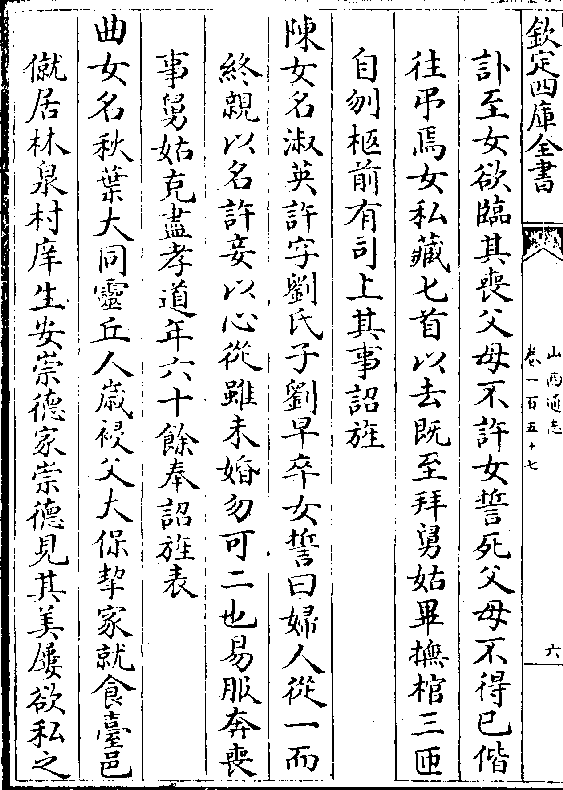 欽定四庫全書
山西通志
卷一百五十七
六
訃至女欲臨其喪父母不許女誓死父母不得已偕
往弔焉女私藏匕首以去既至拜舅姑畢撫棺三匝
自刎柩前有司上其事詔旌
陳女名淑英許字劉氏子劉早卒女誓曰婦人從一而
終親以名許妾以心從雖未婚勿可二也易服奔喪
事舅姑克盡孝道年六十餘奉詔旌表
曲女名秋葉大同靈丘人歲祲父大保挈家就食臺邑
僦居林泉村庠生安崇德家崇德見其美屢欲私之